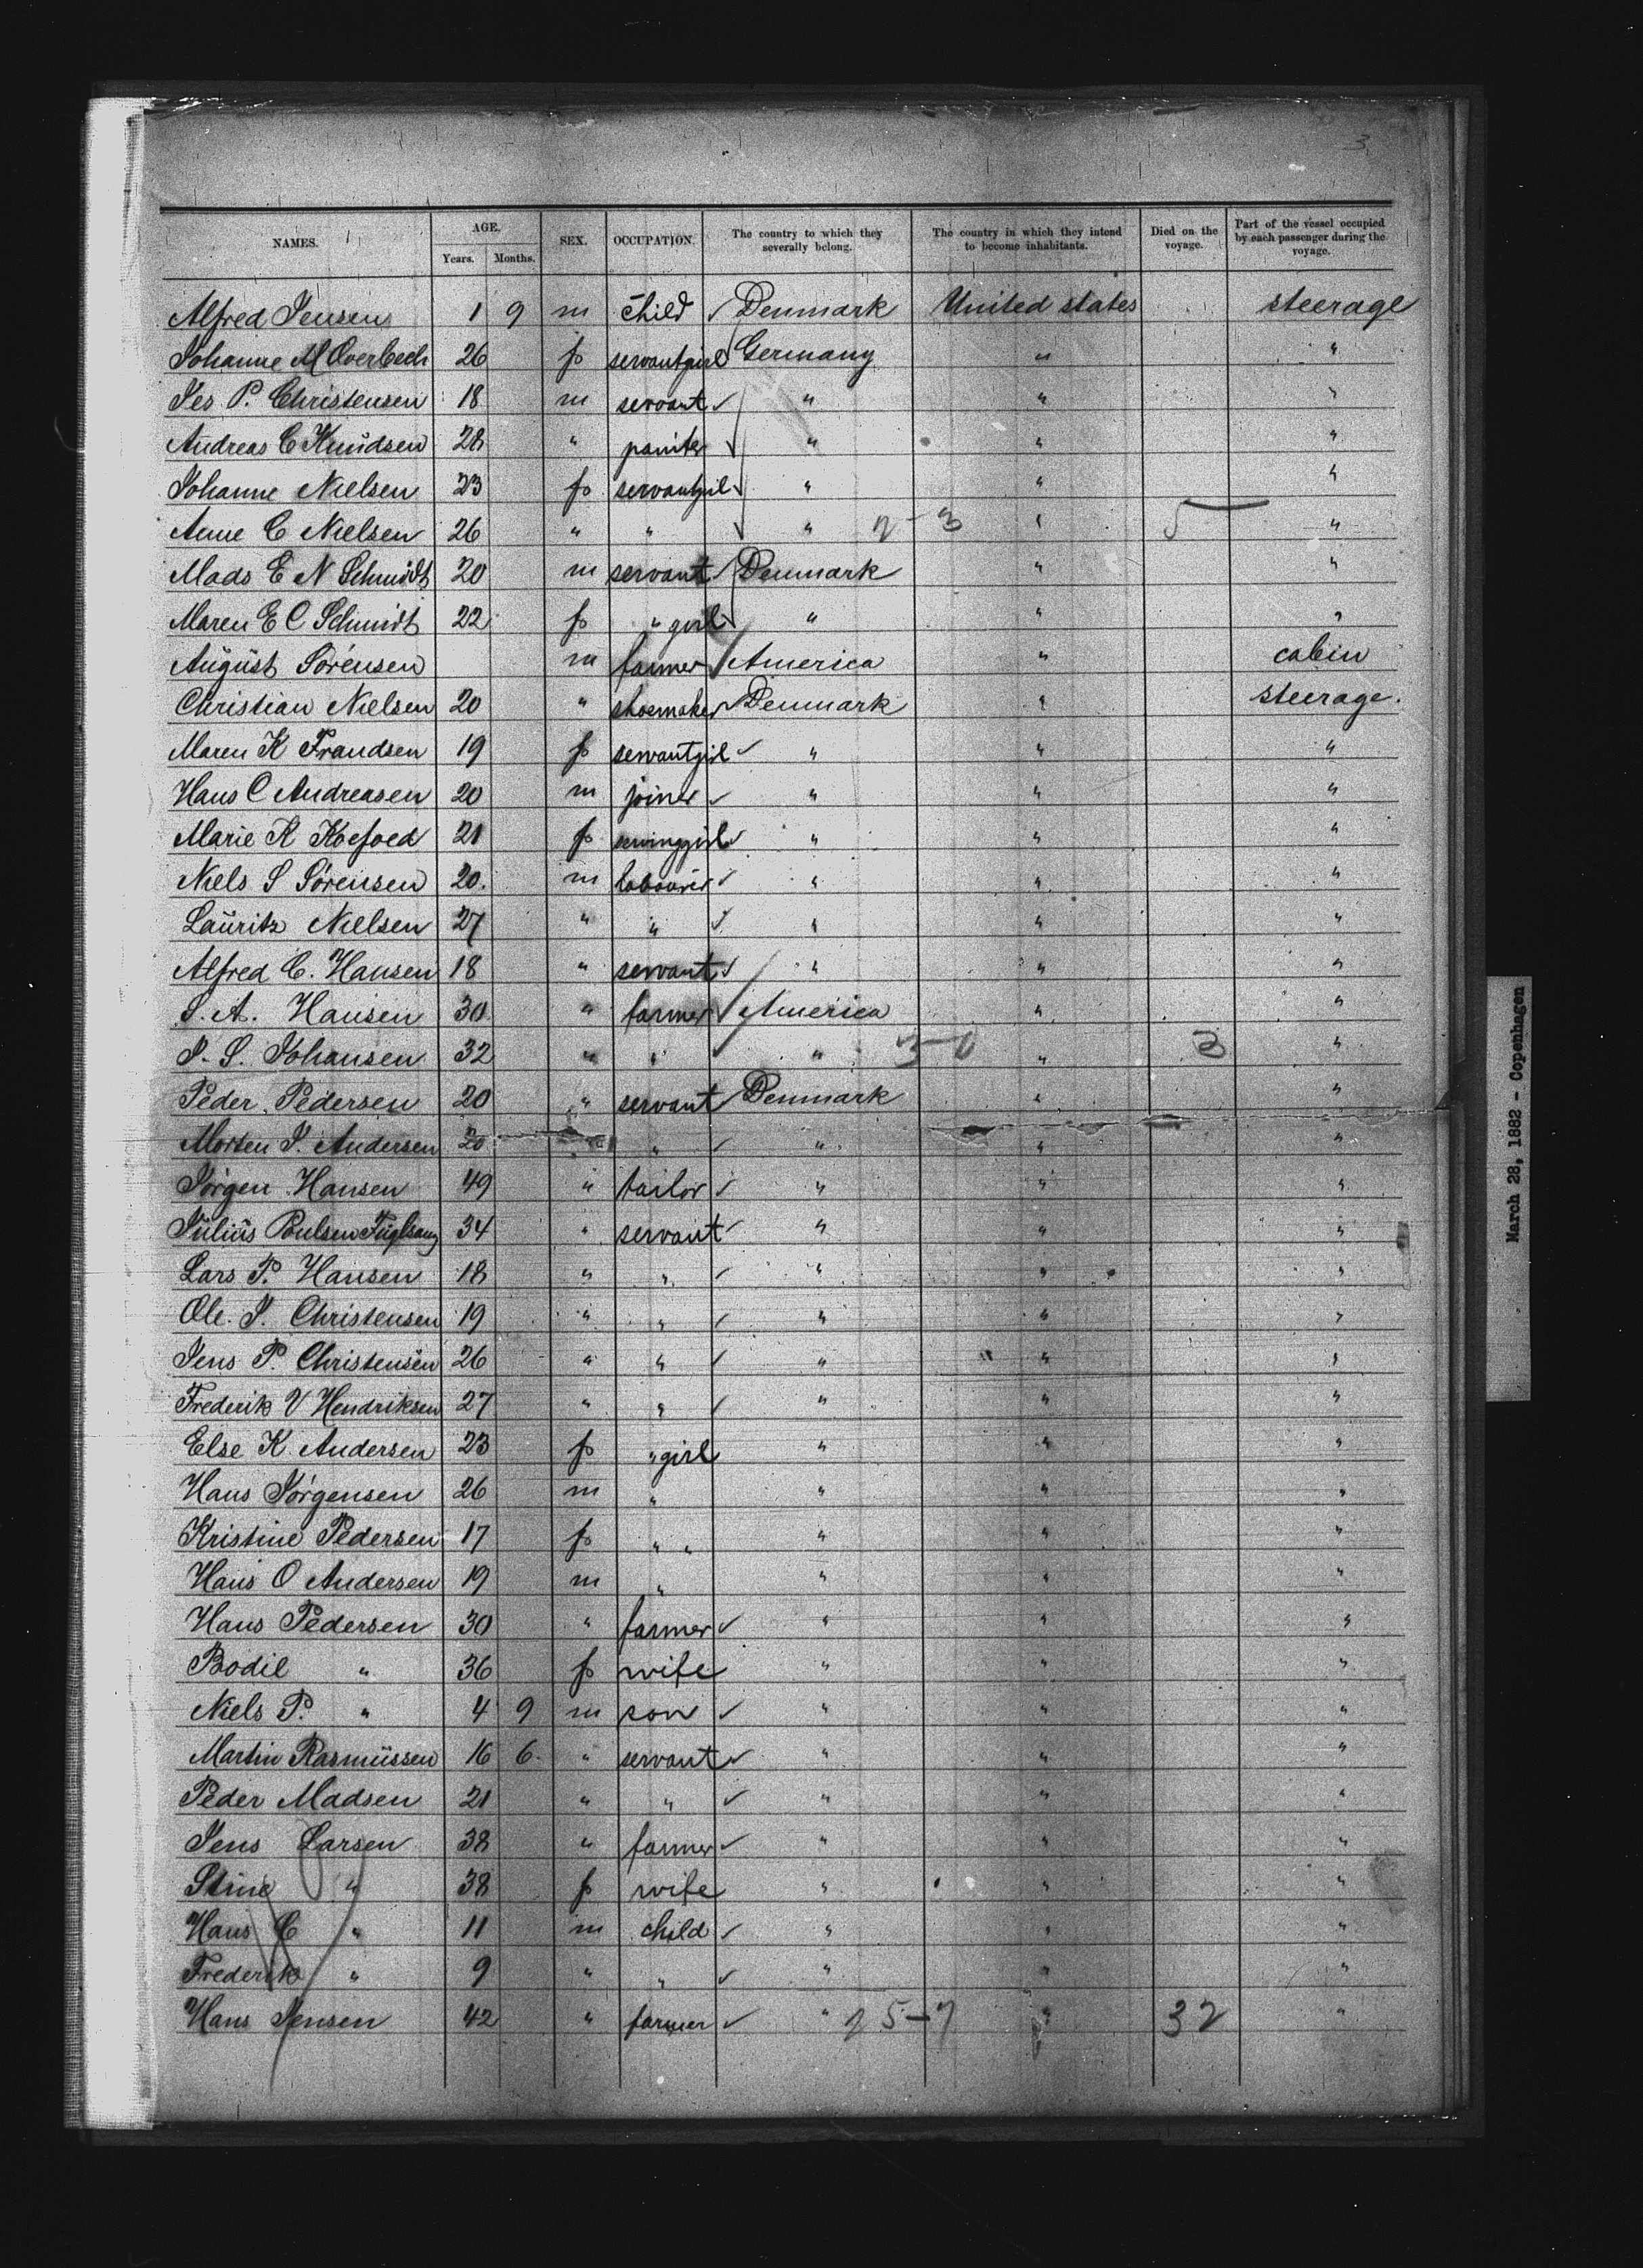 3
NAMES. AGE. SEX. OCCUPATION. The country to which they severally belong. The country in which they intend to become inhabitants. Died on the voyage. Part of the vessel occupied by each passenger during the voyage.
Years. Months.
Alfred Jensen 1 9 m child Denmark United states steerage
Johanne M Overbech 26 f servantgirl Germany " "
Jes P. Christensen 18 m servant " " "
Andreas C Knudsen 28 " painter " " "
Johanne Nielsen 23 f servantgirl " " "
Anne C Nielsen 26 " " " 2-3 " 5 "
Mads E N Schmidt 20 m servant Denmark " "
Maren E C Schmidt 22 f " girl " " "
August Sörensen m farmer America " cabin
Christian Nielsen 20 " shoemaker Denmark " steerage.
Maren K Frandsen 19 f servantgirl " " "
Hans C Andreasen 20 m joiner " " "
Marie K Koefoed 21 f sewinggirl " " "
Niels S Sörensen 20. m labourer " " "
Lauritz Nielsen 27 " " " " "
Alfred C. Hansen 18 " servant " " "
S. A. Hansen 30 " farmer America " "
J. S. Johansen 32 " " " 3-0 " 3 "
Peder Pedersen 20 " servant Denmark " "
Morten J. Andersen 20 " " " " "
Jörgen Hansen 49 " tailor " " "
Julius Poulsen Fuglsang 34 " servant " " "
Lars P. Hansen 18 " " " " "
Ole J. Christensen 19 " " " " "
Jens P. Christensen 26 " " " " "
Frederik V Hendriksen 27 " " " " "
Else K Andersen 23 f " girl " " "
Hans Jörgensen 26 m " " " "
Kristine Pedersen 17 f " " " " "
Hans O Andersen 19 m " " " "
Hans Pedersen 30 " farmer " " "
Bodil " 36 f wife " " "
Niels P. " 4 9 m son " " "
Martin Rasmussen 16 6. " servant " " "
Peder Madsen 21 " " " " "
Jens Larsen 38 " farmer " " "
Stine " 38 f wife " " "
Hans C " 11 m child " " "
Frederik " 9 " " " " "
Hans Jensen 42 " farmer " 25-7 " 32 "
March 28, 1882 - Copenhagen